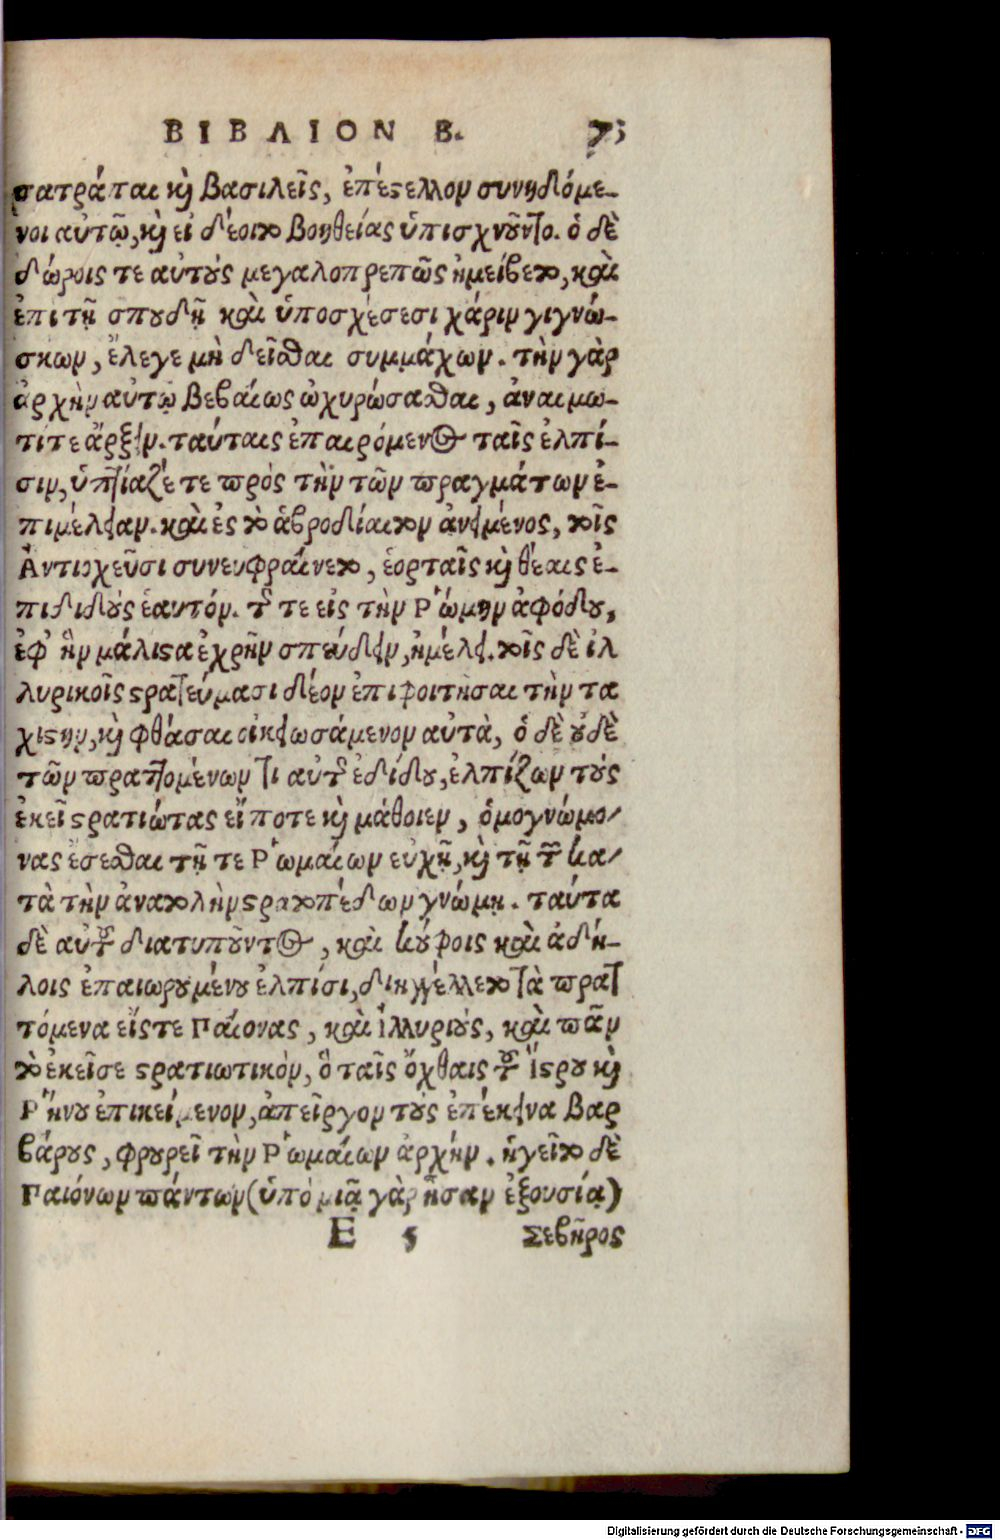 ΒΙΒΛΙΟΝ Β. 73
σατράπαι κỳ βασιλεῖς, ἐπέϛελλον συνηδόμε-
νοι αὐτῷ, κỳ εἰ δέοιτο βοηθείας ὑπισχνοῦντο. ὁ δὲ
δώροις τε αὐτοὺς μεγαλοπρεπῶς ἠμείβετο, καὶ
ἐπὶ τῇ σπουδῇ καὶ ὑποσχέσεσι χάριν γιγνώ-
σκων, ἔλεγε μὴ δεῖσθαι συμμάχων. τὴν γὰρ
ἀρχὴν αὐτῷ βεβαίως ὠχυρώσασθαι, ἀναιμω-
τί τε ἄρξειν. ταύταις ἐπαιρόμενος ταῖς ἐλπί-
σιν, ὑπτίαζέ τε πρὸς τὴν τῶν πραγμάτων ἐ-
πιμέλειαν. καὶ ἐς τὸ ἁβροδίαιτον ἀνειμένος, τοῖς
Ἀντιοχεῦσι συνευφραίνετο, ἑορταῖς κỳ θέαις ἐ-
πιδιδοὺς ἑαυτόν. τοῦ τε εἰς τὴν Ῥώμην ἀφόδου,
ἐφ' ἣν μάλιϛα ἐχρῆν σπεύδειν, ἠμέλει. τοῖς δὲ ἰλ
λυρικοῖς ϛρατεύμασι δέον ἐπιφοιτῆσαι τὴν τα
χίϛην, κỳ φθάσαι οἰκειωσάμενον αὐτὰ, ὁ δὲ οὐδὲ
τῶν πραττομένων τι αὐτοῦ ἐδίδου, ἐλπίζων τοὺς
ἐκεῖ ϛρατιώτας εἴ ποτε κỳ μάθοιεν, ὁμογνώμο-
νας ἔσεσθαι τῇ τε Ῥωμαίων εὐχῇ, κỳ τῇ τῶν κα-
τὰ τὴν ἀνατολὴν ϛρατοπέδων γνώμῃ. ταῦτα
δὲ αὐτοῦ διατυποῦντος, καὶ κούφοις καὶ ἀδή-
λοις ἐπαιωρουμένου ἐλπίσι, διηγγέλλετο τὰ πρατ
τόμενα εἴς τε Παίονας, καὶ Ἰλλυριοὺς, καὶ πᾶν
τὸ ἐκεῖσε ϛρατιωτικὸν, ὃ ταῖς ὄχθαις τοῦ Ἴϛρου κỳ
Ῥήνου ἐπικείμενον, ἀπεῖργον τοὺς ἐπέκεινα βαρ
βάρους, φρουρεῖ τὴν Ῥωμαίων ἀρχήν. ἡγεῖτο δὲ
Παιόνων πάντων (ὑπὸ μιᾷ γὰρ ἦσαν ἐξουσίᾳ)
E 5 Σεβῆρος
Digitalisierung gefördert durch die Deutsche Forschungsgemeinschaft - DFG